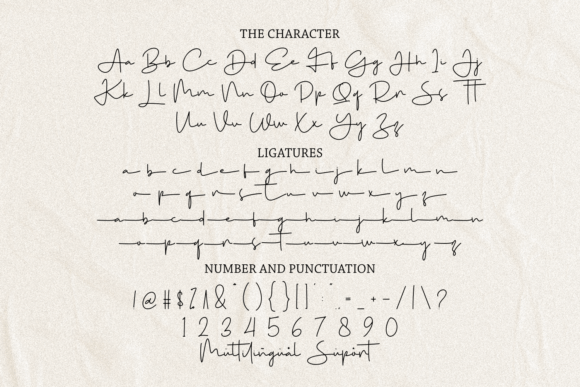 THE CHARACTER
Aa Bb Cc Dd Ee Ff Gg Hh Ii Jj
Kk Ll Mm Nn Oo Pp Qq Rr Ss Tt
Uu Vv Ww Xx Yy Zz
LIGATURES
a b c d e f g h i j k l m n
o p q r s t u v w x y z
a b c d e f g h i j k l m n
o p q r s t u v w x y z
NUMBER AND PUNCTUATION
! @ # $ % ^ & * ( ) { } [ ] " : ; . = _ + - / | \ ?
1 2 3 4 5 6 7 8 9 0
Multilingual Suport